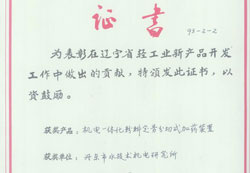 证书
93-2-2
为表彰在辽宁省轻工业新产品开发
工作中做出的贡献，特颁发此证书，以
资鼓励。
获奖产品：机电一体化粉料定量分切式加药装置
获奖单位：丹东市水技术机电研究所